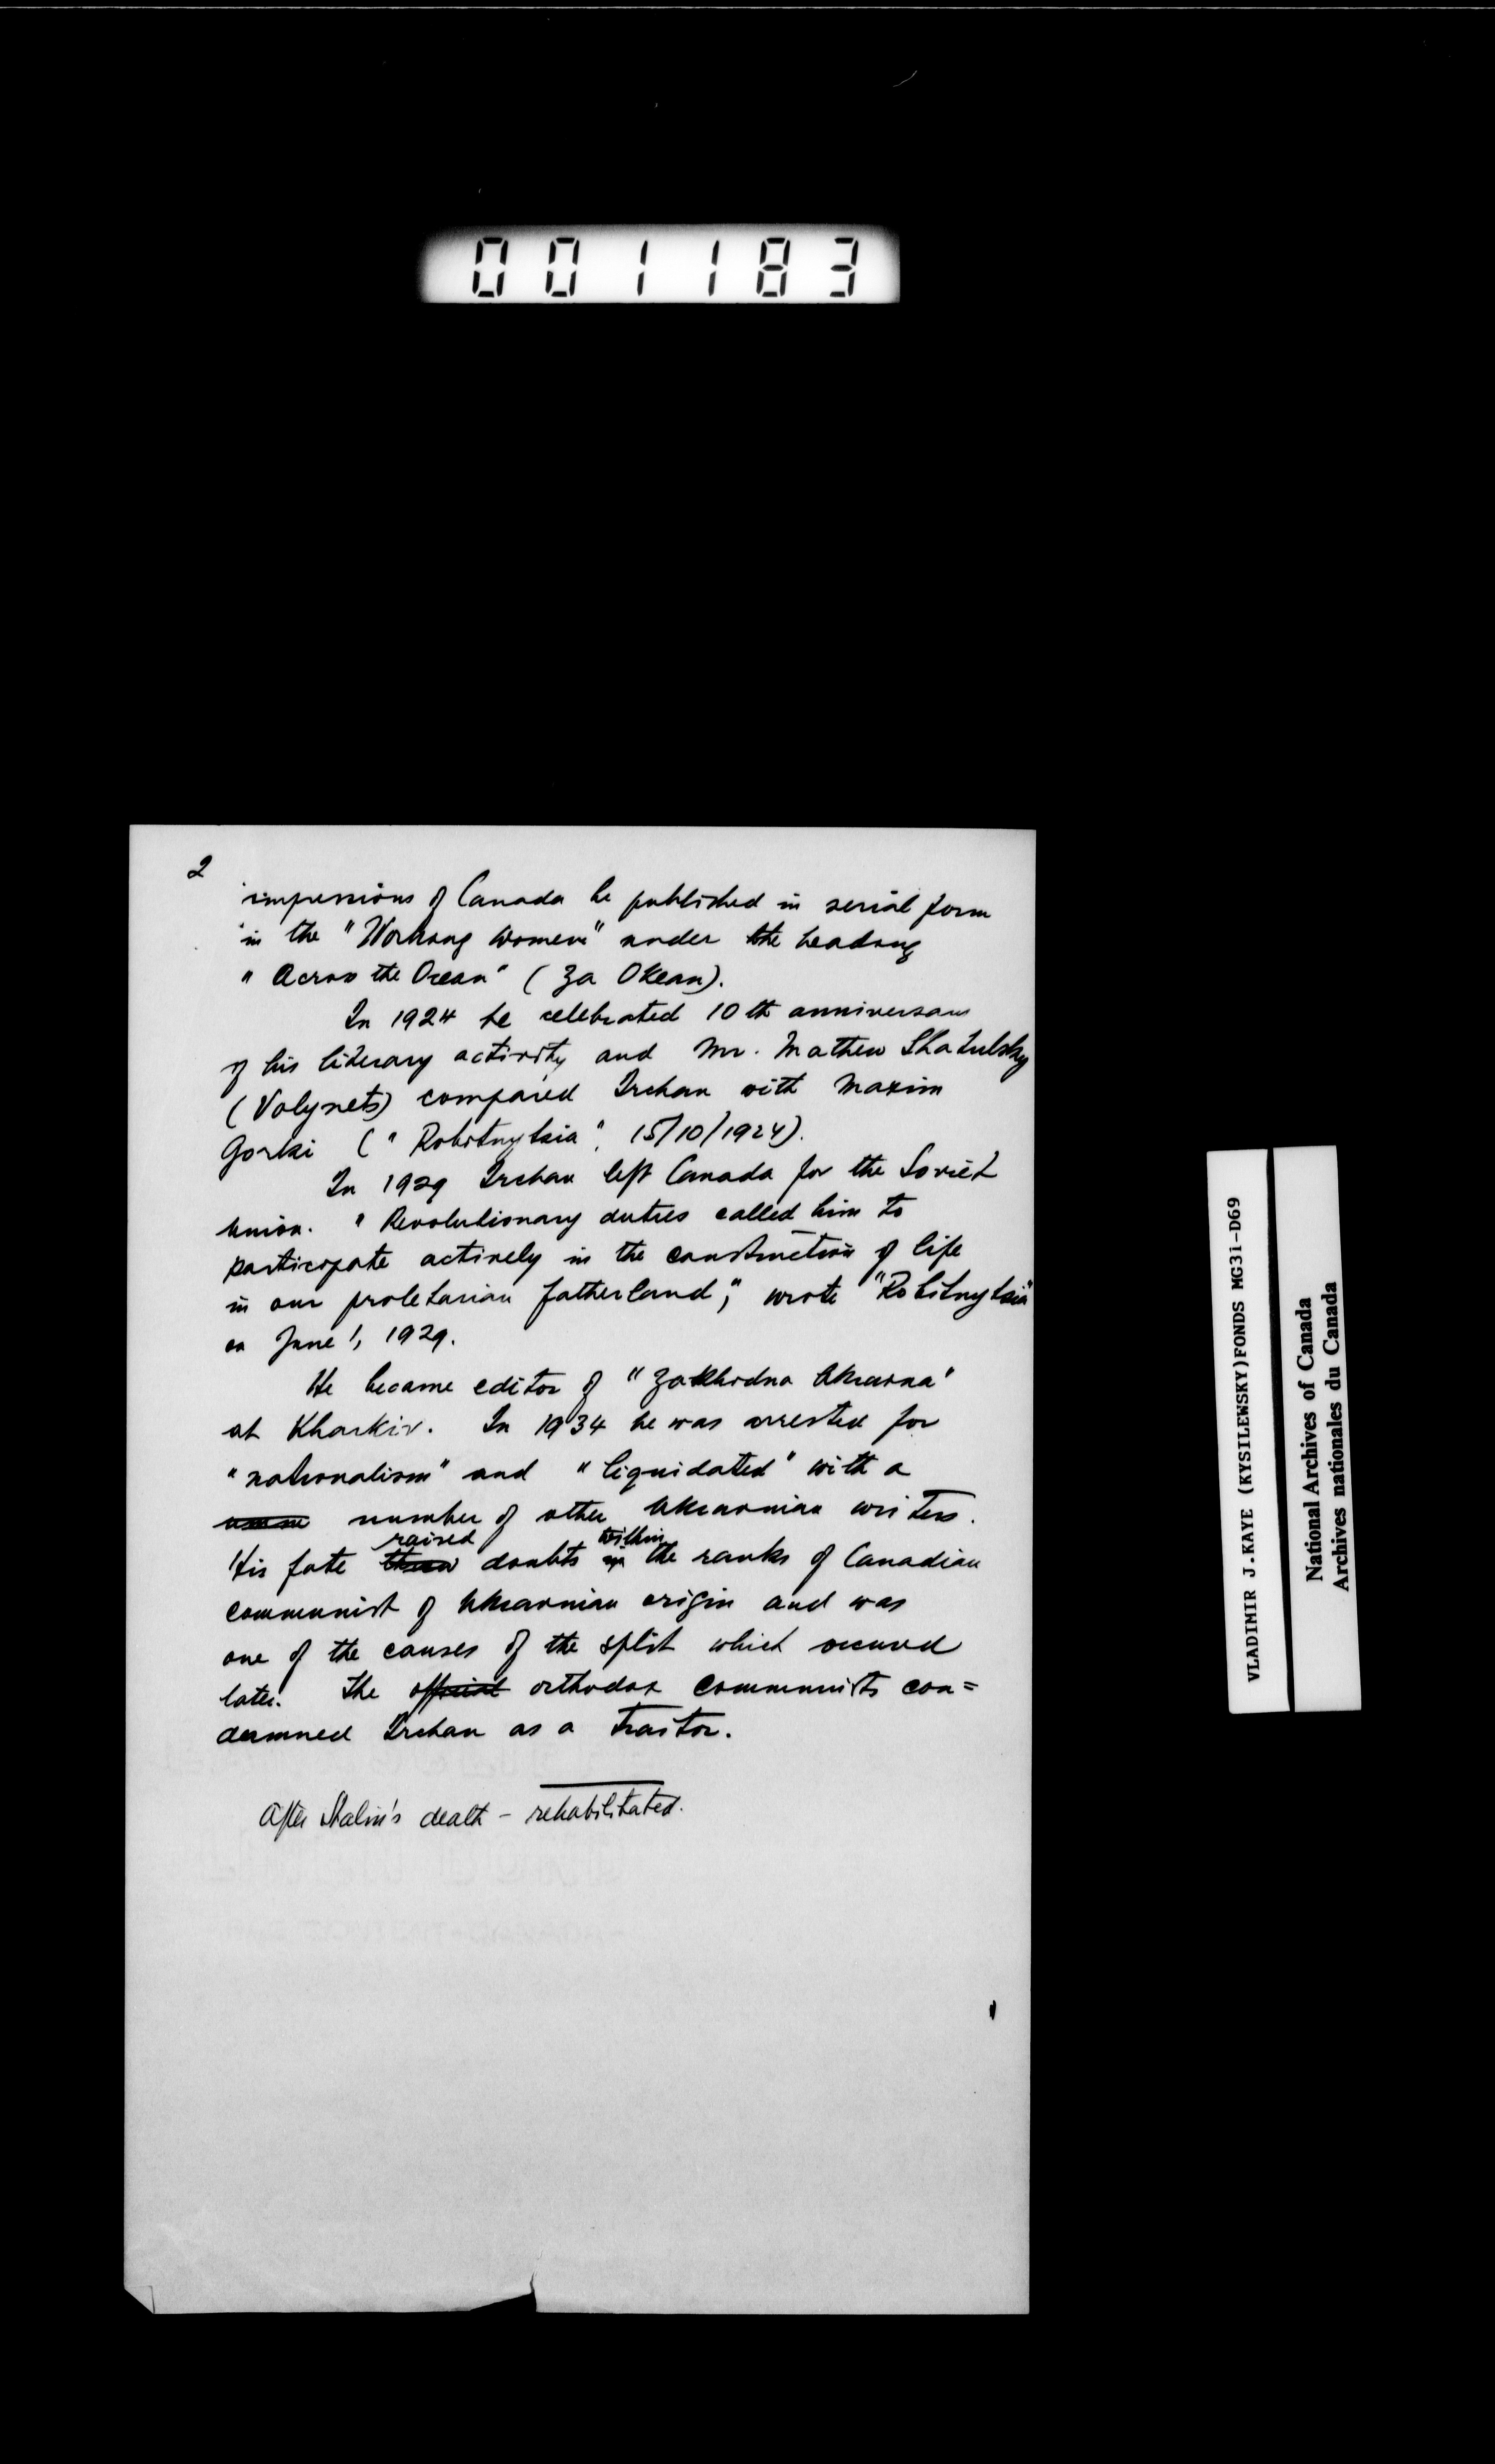 001183
2
impressions of Canada he published in serial form
in the "Working Women" under the heading
"Across the Ocean" (Za Okean).
In 1924 he celebrated 10th anniversary
of his literary activity and Mr. Mathew Shatulsky
(Volynets) compared Irchan with Maxim
Gorki ("Robitnytsia", 15/10/1924).
In 1929 Irchan left Canada for the Soviet
Union. "Revolutionary duties called him to
participate actively in the construction of life
in our proletarian fatherland", wrote "Robitnytsia"
on June 1, 1929.
He became editor of "Zakhidna Ukraina"
at Kharkiv. In 1934 he was arrested for
"nationalism" and "liquidated" with a
number of other Ukrainian writers.
raised within
His fate threw doubts in the ranks of Canadian
communist of Ukrainian origin and was
one of the causes of the split which occured
later. The official orthodox communists con=
demned Irchan as a traitor.
After Stalin's death – rehabilitated.
VLADIMIR J.KAYE (KYSILEWSKY)FONDS MG31-D69
National Archives of Canada
Archives nationales du Canada